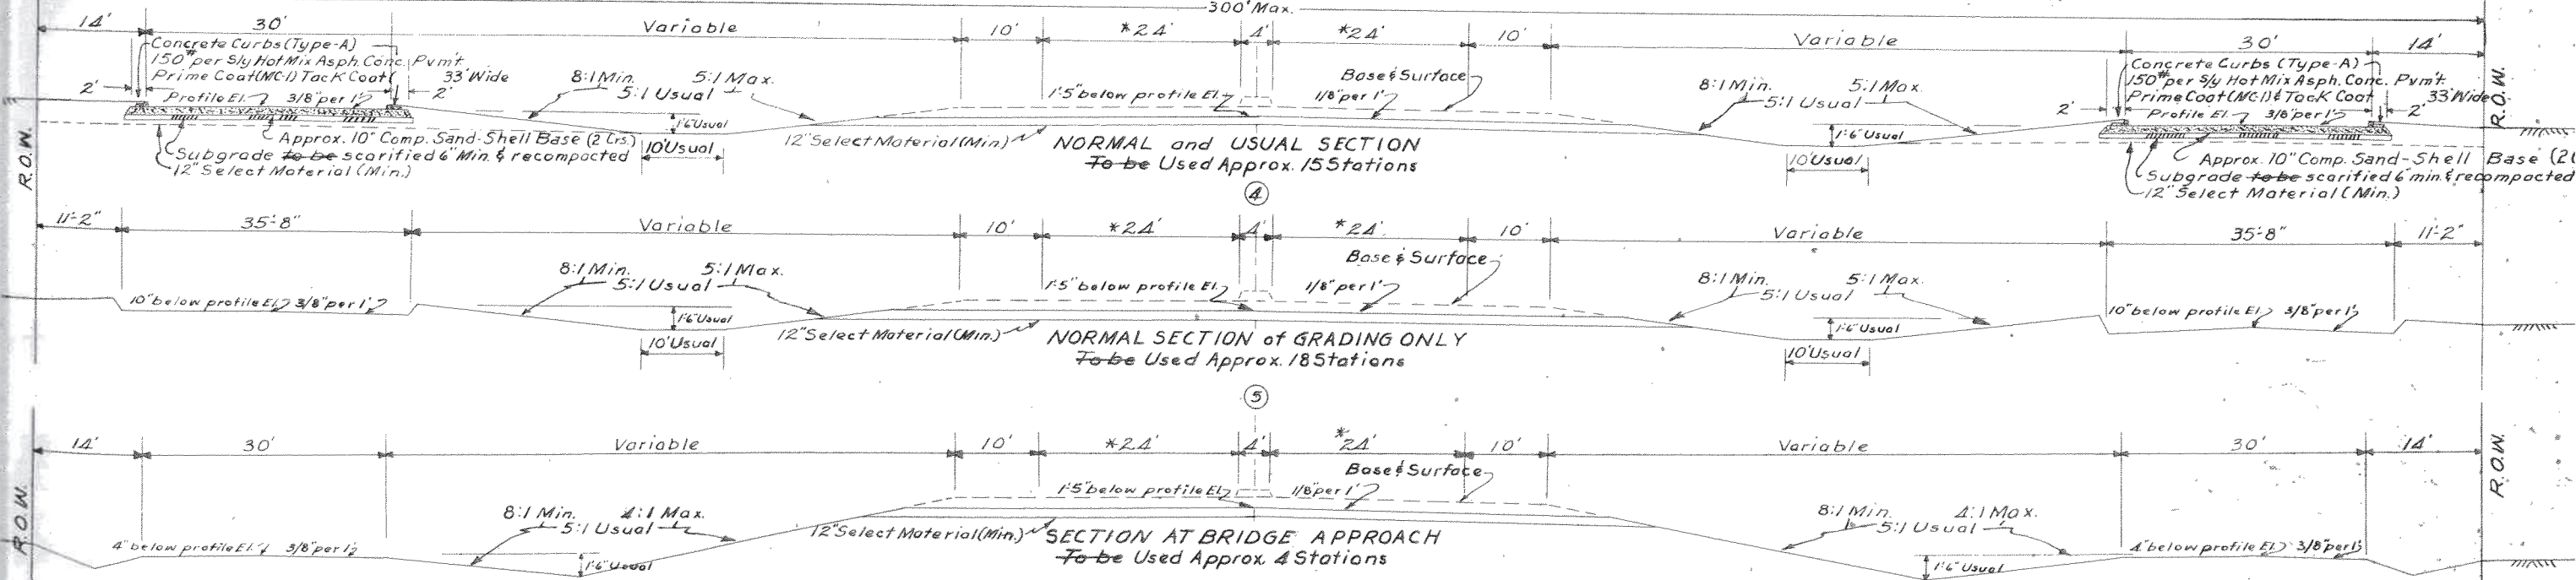 300' Max.
14' 30' Variable 10' *24' 4' *24' 10' Variable 30' 14'
Concrete Curbs (Type-A)
150# per S/y Hot Mix Asph. Conc. Pvm't
Prime Coat (MC-1) Tack Coat 33' Wide
2' Profile El. 3/8" per 1' 2'
8:1 Min. 5:1 Max.
5:1 Usual
1'6" Usual
10' Usual
Approx. 10" Comp. Sand-Shell Base (2 Crs.)
Subgrade to be scarified 6" Min. & recompacted
12" Select Material (Min.)
R.O.W.
1'-5" below profile El.
Base & Surface
1/8" per 1'
12" Select Material (Min.)
NORMAL and USUAL SECTION
To be Used Approx. 15 Stations
8:1 Min. 5:1 Max.
5:1 Usual
1'-6" Usual
10' Usual
Concrete Curbs (Type-A)
150# per S/y Hot Mix Asph. Conc. Pvm't.
Prime Coat (MC-1) & Tack Coat 33' Wide
2' Profile El. 3/8" per 1' 2'
Approx. 10" Comp. Sand-Shell Base (2
Subgrade to be scarified 6" min. & recompacted
12" Select Material (Min.)
R.O.W.
4
11'-2" 35'-8" Variable 10' *24' 4' *24' 10' Variable 35'-8" 11'-2"
10" below profile El. 3/8" per 1'
8:1 Min. 5:1 Max.
5:1 Usual
1'6" Usual
10' Usual
1'-5" below profile El.
Base & Surface
1/8" per 1'
12" Select Material (Min.)
NORMAL SECTION of GRADING ONLY
To be Used Approx. 18 Stations
8:1 Min. 5:1 Max.
5:1 Usual
1'-6" Usual
10' Usual
10" below profile El. 3/8" per 1'
5
14' 30' Variable 10' *24' 4' *24' 10' Variable 30' 14'
R.O.W.
4" below profile El. 3/8" per 1'
8:1 Min. 4:1 Max.
5:1 Usual
1'-6" Usual
1'-5" below profile El.
Base & Surface
1/8" per 1'
12" Select Material (Min.)
SECTION AT BRIDGE APPROACH
To be Used Approx. 4 Stations
8:1 Min. 4:1 Max.
5:1 Usual
1'-6" Usual
4" below profile El. 3/8" per 1'
R.O.W.